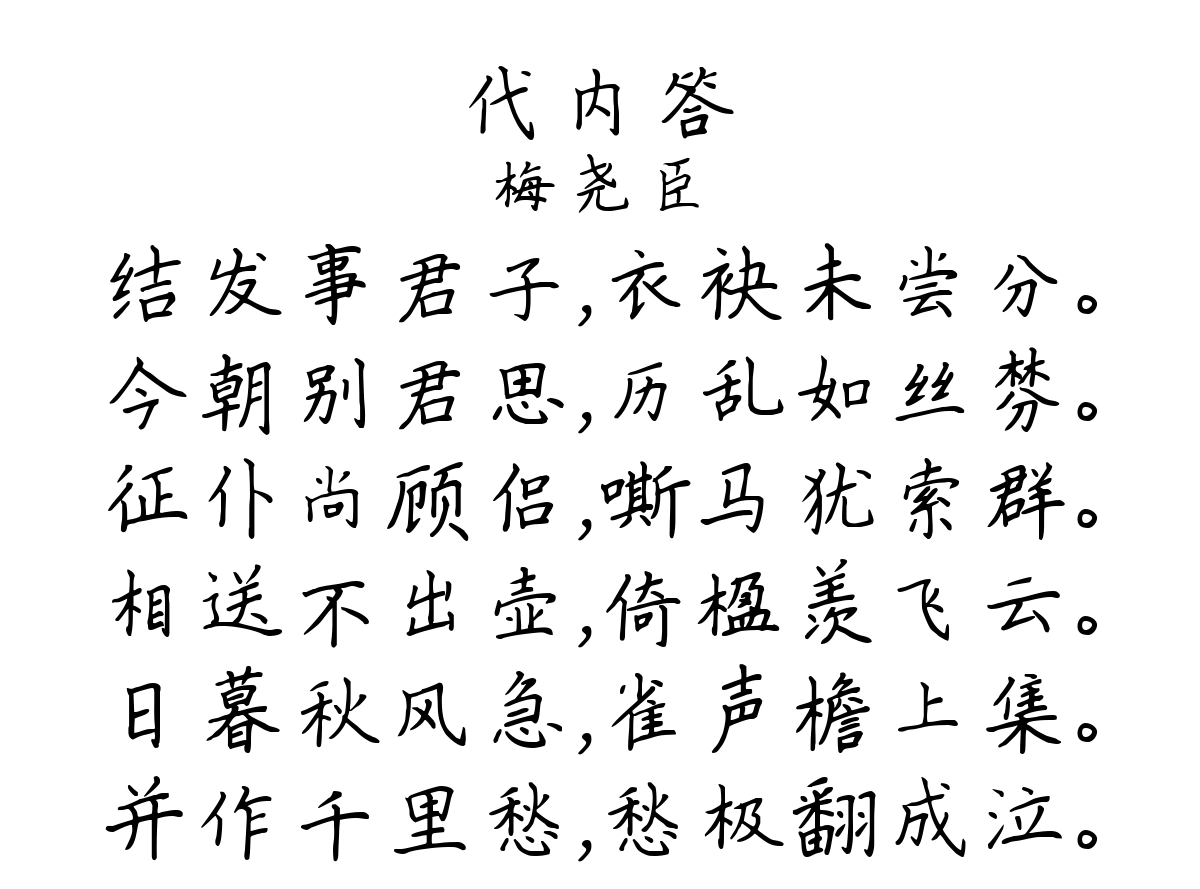 代内答
梅尧臣
结发事君子,衣袂未尝分。
今朝别君思,历乱如丝棼。
征仆尚顾侣,嘶马犹索群。
相送不出壶,倚楹羡飞云。
日暮秋风急,雀声檐上集。
并作千里愁,愁极翻成泣。